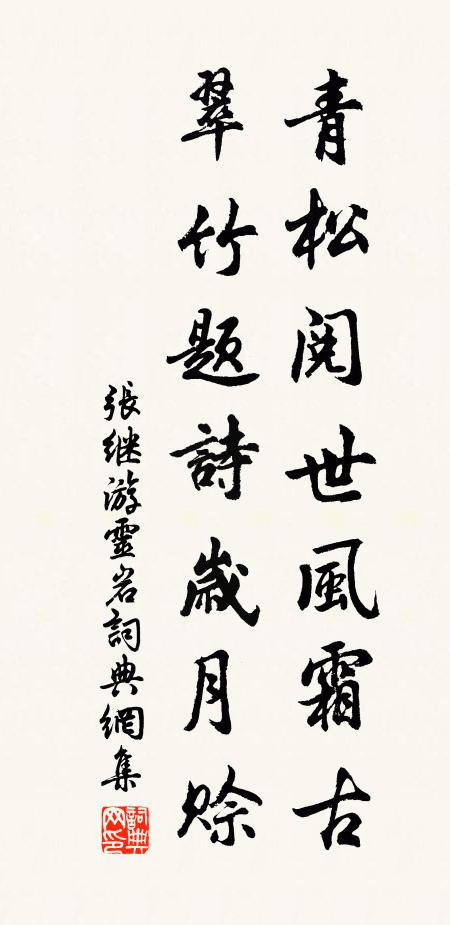 青松閱世風霜古
翠竹題詩歲月賒
張继游靈岩詞典網集
詞典网印